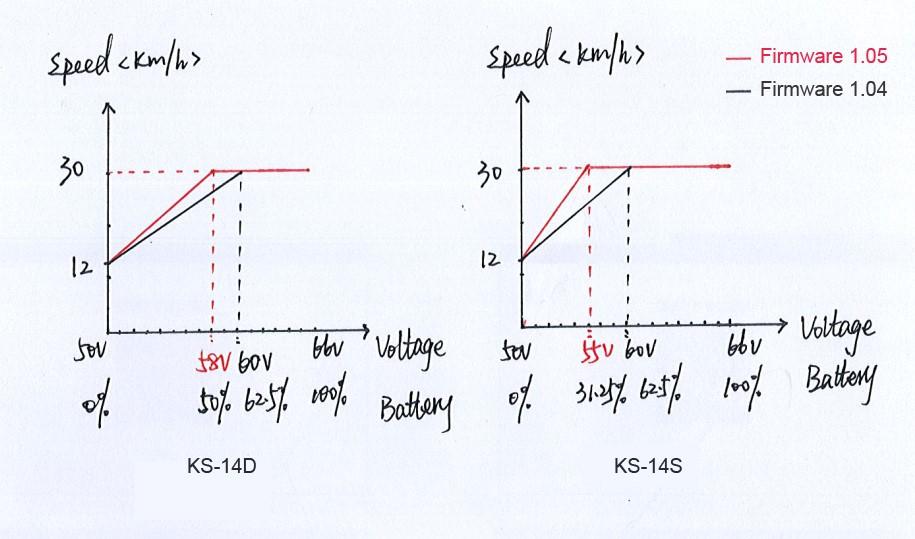 Speed <km/h>
30
12
50V 58V 60V 66V Voltage
0% 50% 62.5% 100% Battery
KS-14D
Speed <km/h>
Firmware 1.05
Firmware 1.04
30
12
50V 55V 60V 66V Voltage
0% 31.25% 62.5% 100% Battery
KS-14S